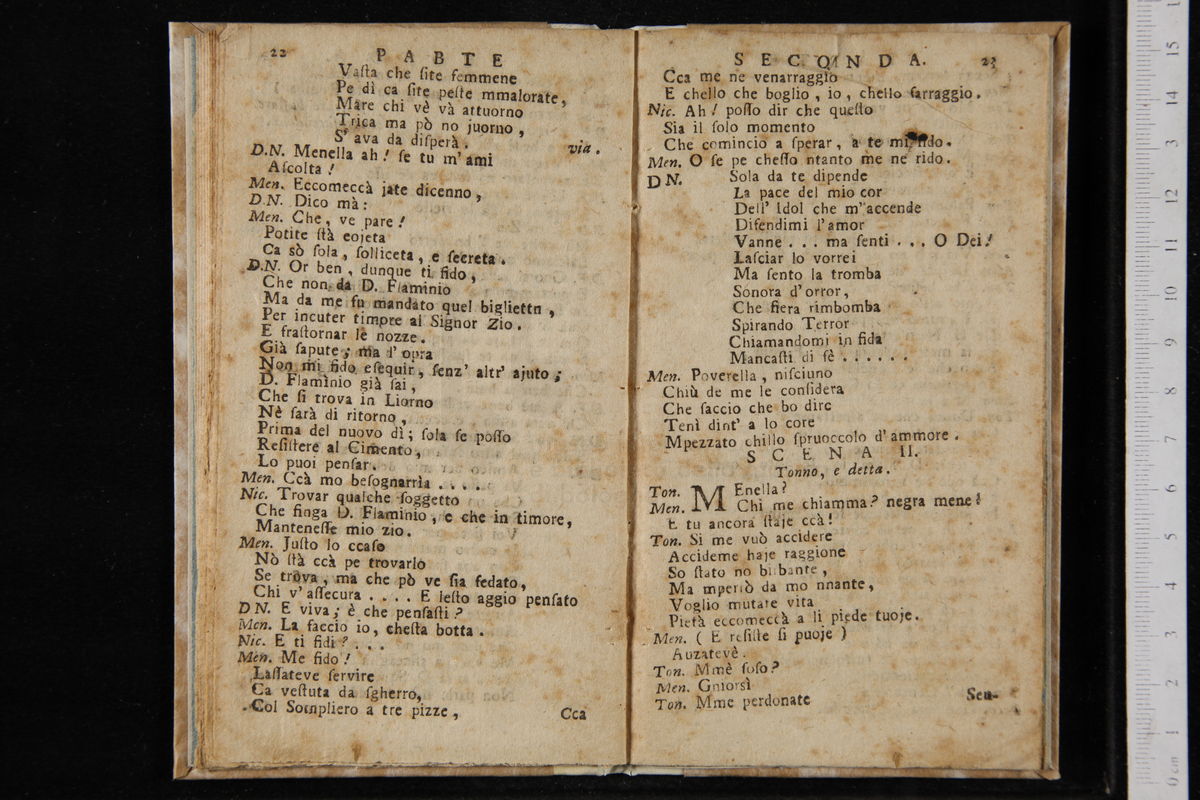 22 PABTE
Vaſta che ſite femmene
Pe dì ca ſite peſte mmalorate,
Mare chi vè và attuorno
Trica ma pò no juorno,
S' ava da diſperà. via.
D.N. Menella ah! ſe tu m' ami
Aſcolta!
Men. Eccomeccà jate dicenno,
D.N. Dico mà:
Men. Che, ve pare!
Potite ſtà eojeta
Ca sò ſola, ſolliceta, e ſecreta.
D.N. Or ben, dunque ti fido,
Che non da D. Flaminio
Ma da me fu mandato quel bigliettn,
Per incuter timore al Signor Zio.
E fraſtornar le nozze.
Già ſapute; ma l' opra
Non mi fido eſequir, ſenz' altr' ajuto;
D. Flaminio già ſai,
Che ſi trova in Liorno
Nè ſarà di ritorno,
Prima del nuovo dì; ſola ſe poſſo
Reſiſtere al Cimento,
Lo puoi penſar.
Men. Ccà mo beſognarria ....
Nic. Trovar qualche ſoggetto
Che finga D. Flaminio, e che in timore,
Manteneſſe mio zio.
Men. Juſto lo ccaſo
Nò ſtà ccà pe trovarlo
Se trova, ma che pò ve ſia fedato,
Chi v' aſſecura .... E leſto aggio penſato
D N. E viva; è che penſaſti?
Men. La faccio io, cheſta botta.
Nic. E ti fidi? ...
Men. Me fido!
Laſſateve ſervire
Ca veſtuta da ſgherro,
Col Sompliero a tre pizze,
Cca
SECONDA. 23
Cca me ne venarraggio
E chello che boglio, io, chello farraggio.
Nic. Ah! poſſo dir che queſto
Sia il ſolo momento
Che comincio a ſperar, a te mi fido.
Men. O ſe pe cheſſo ntanto me ne rido.
D N. Sola da te dipende
La pace del mio cor
Dell' Idol che m' accende
Difendimi l'amor
Vanne ... ma ſenti ... O Dei!
Laſciar lo vorrei
Ma ſento la tromba
Sonora d' orror,
Che fiera rimbomba
Spirando Terror
Chiamandomi in fida
Mancaſti di fè ......
Men. Poverella, niſciuno
Chiù de me le conſidera
Che faccio che bo dire
Tenì dint' a lo core
Mpezzato chillo ſpruoccolo d' ammore.
SCENA II.
Tonno, e detta.
Ton. MEnella?
Men. Chi me chiamma? negra mene!
E tu ancora ſtaje ccà!
Ton. Si me vuò accidere
Accideme haje raggione
So ſtato no birbante,
Ma mperiò da mo nnante,
Voglio mutare vita
Pietà eccomeccà a li piede tuoje.
Men. ( E reſiſte ſi puoje )
Auzatevè.
Ton. Mmè ſoſo?
Men. Gniorsì
Ton. Mme perdonate
Scu-
15
14
13
12
11
10
9
8
7
6
5
4
3
2
1
0 cm